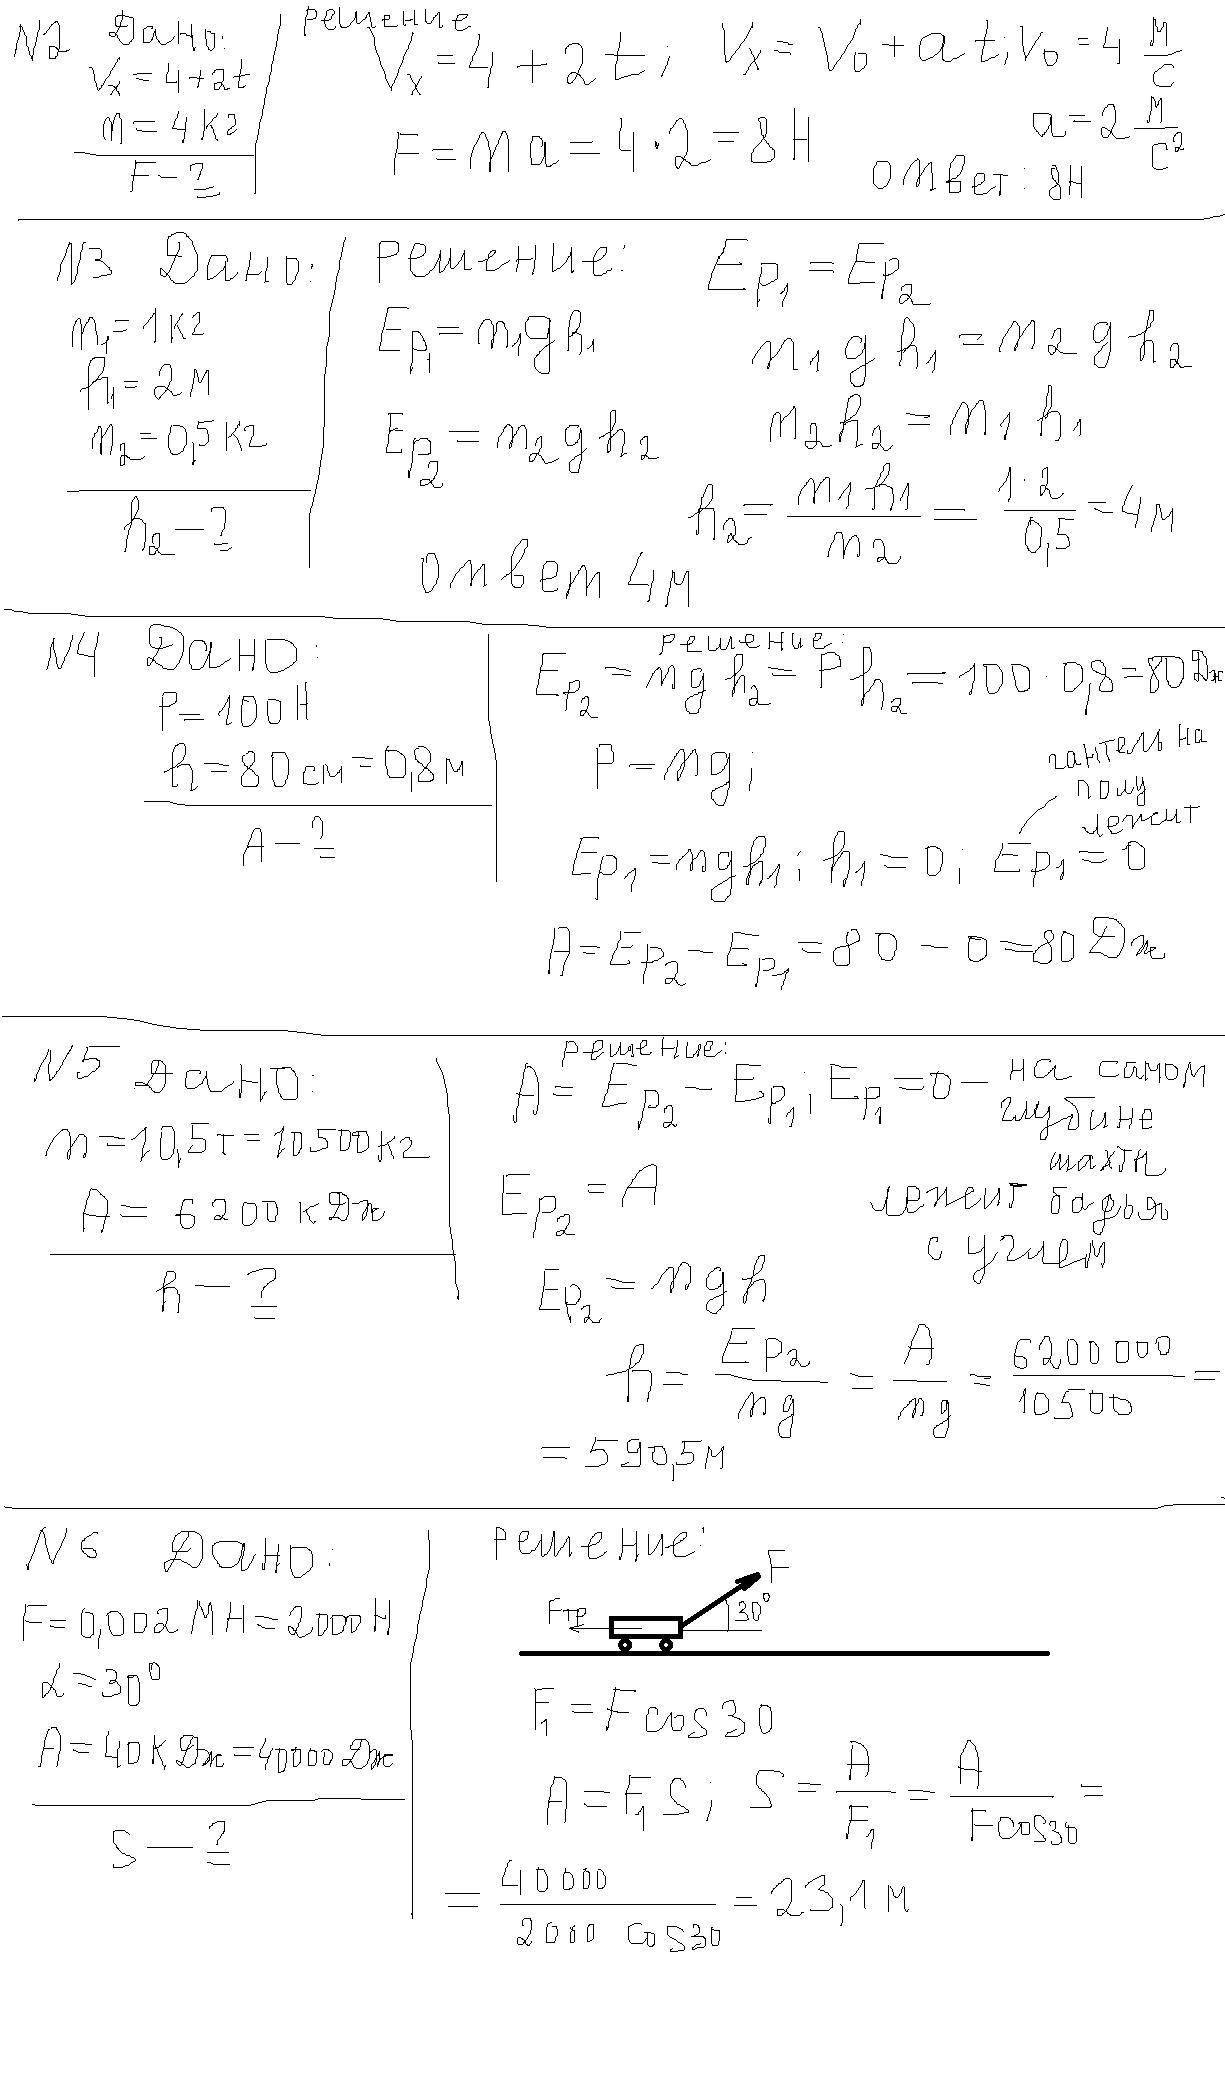 N2 Дано: решение
Vx = 4+2t
m = 4 кг
F - ?
Vx = 4 + 2t; Vx = V0 + at; V0 = 4 м/с
a = 2 м/с²
F = ma = 4·2 = 8Н
ответ: 8Н
N3 Дано:
m1 = 1 кг
h1 = 2 м
m2 = 0,5 кг
h2 - ?
Решение:
Ep1 = m1gh1
Ep2 = m2gh2
Ep1 = Ep2
m1gh1 = m2gh2
m2h2 = m1h1
h2 = m1h1/m2 = 1·2/0,5 = 4 м
ответ 4 м
N4 Дано:
P = 100Н
h = 80 см = 0,8 м
A - ?
решение:
Ep2 = mgh2 = Ph2 = 100·0,8 = 80 Дж
P = mg;
гантель на
полу
лежит
Ep1 = mgh1; h1 = 0; Ep1 = 0
A = Ep2 - Ep1 = 80 - 0 = 80 Дж
N5 Дано:
m = 10,5т = 10500кг
A = 6200кДж
h - ?
решение:
A = Ep2 - Ep1; Ep1 = 0 - на самом
глубине
шахты
лежит бадья
с углем
Ep2 = A
Ep2 = mgh
h = Ep2/mg = A/mg = 6200000/10500 =
= 590,5м
N6 Дано:
F = 0,002 МН = 2000Н
α = 30°
A = 40кДж = 40000Дж
S - ?
Решение:
F
Fтр
30°
F1 = F cos30
A = F1S; S = A/F1 = A/Fcos30 =
= 40000/2000 cos30 = 23,1 м